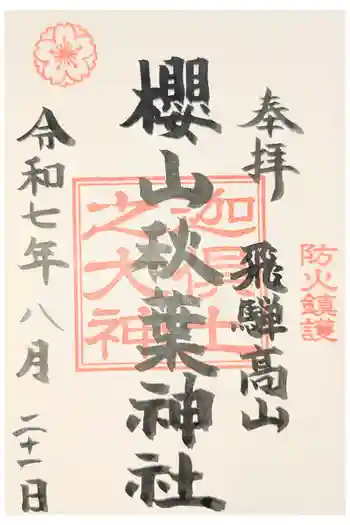 防火鎮護
奉拝
飛騨高山
迦具土
之大神
櫻山秋葉神社
令和七年八月二十一日